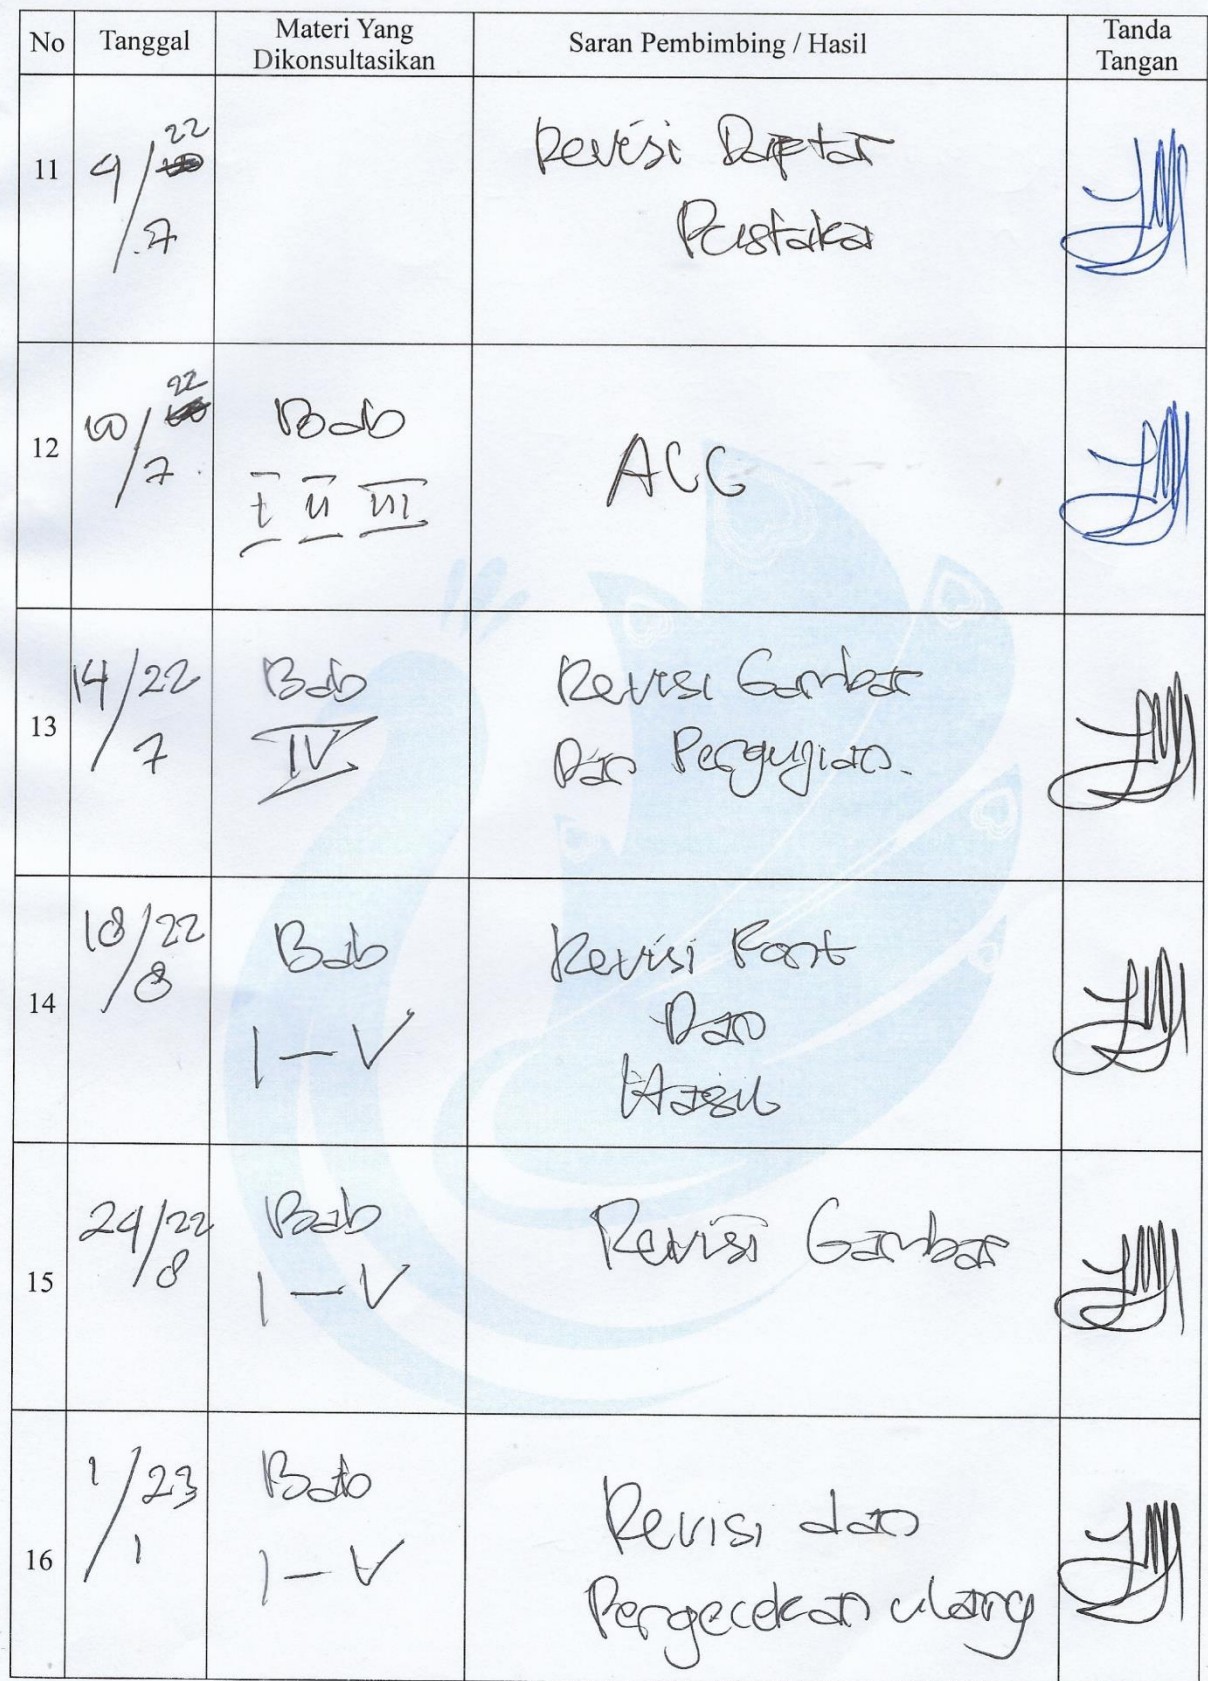 No Tanggal Materi Yang Dikonsultasikan Saran Pembimbing / Hasil Tanda Tangan
11 9/22
7
Revisi Daptar
Pustaka
12 10/22
7
Bab
I II III
ACC
13 14/22
7
Bab
IV
Revisi Gambar
Dan Pengujian.
14 18/22
8
Bab
I - V
Revisi Font
Dan
Hasil
15 24/22
8
Bab
I - V
Revisi Gambar
16 1/23
1
Bab
I - V
Revisi dan
Pengecekan ulang